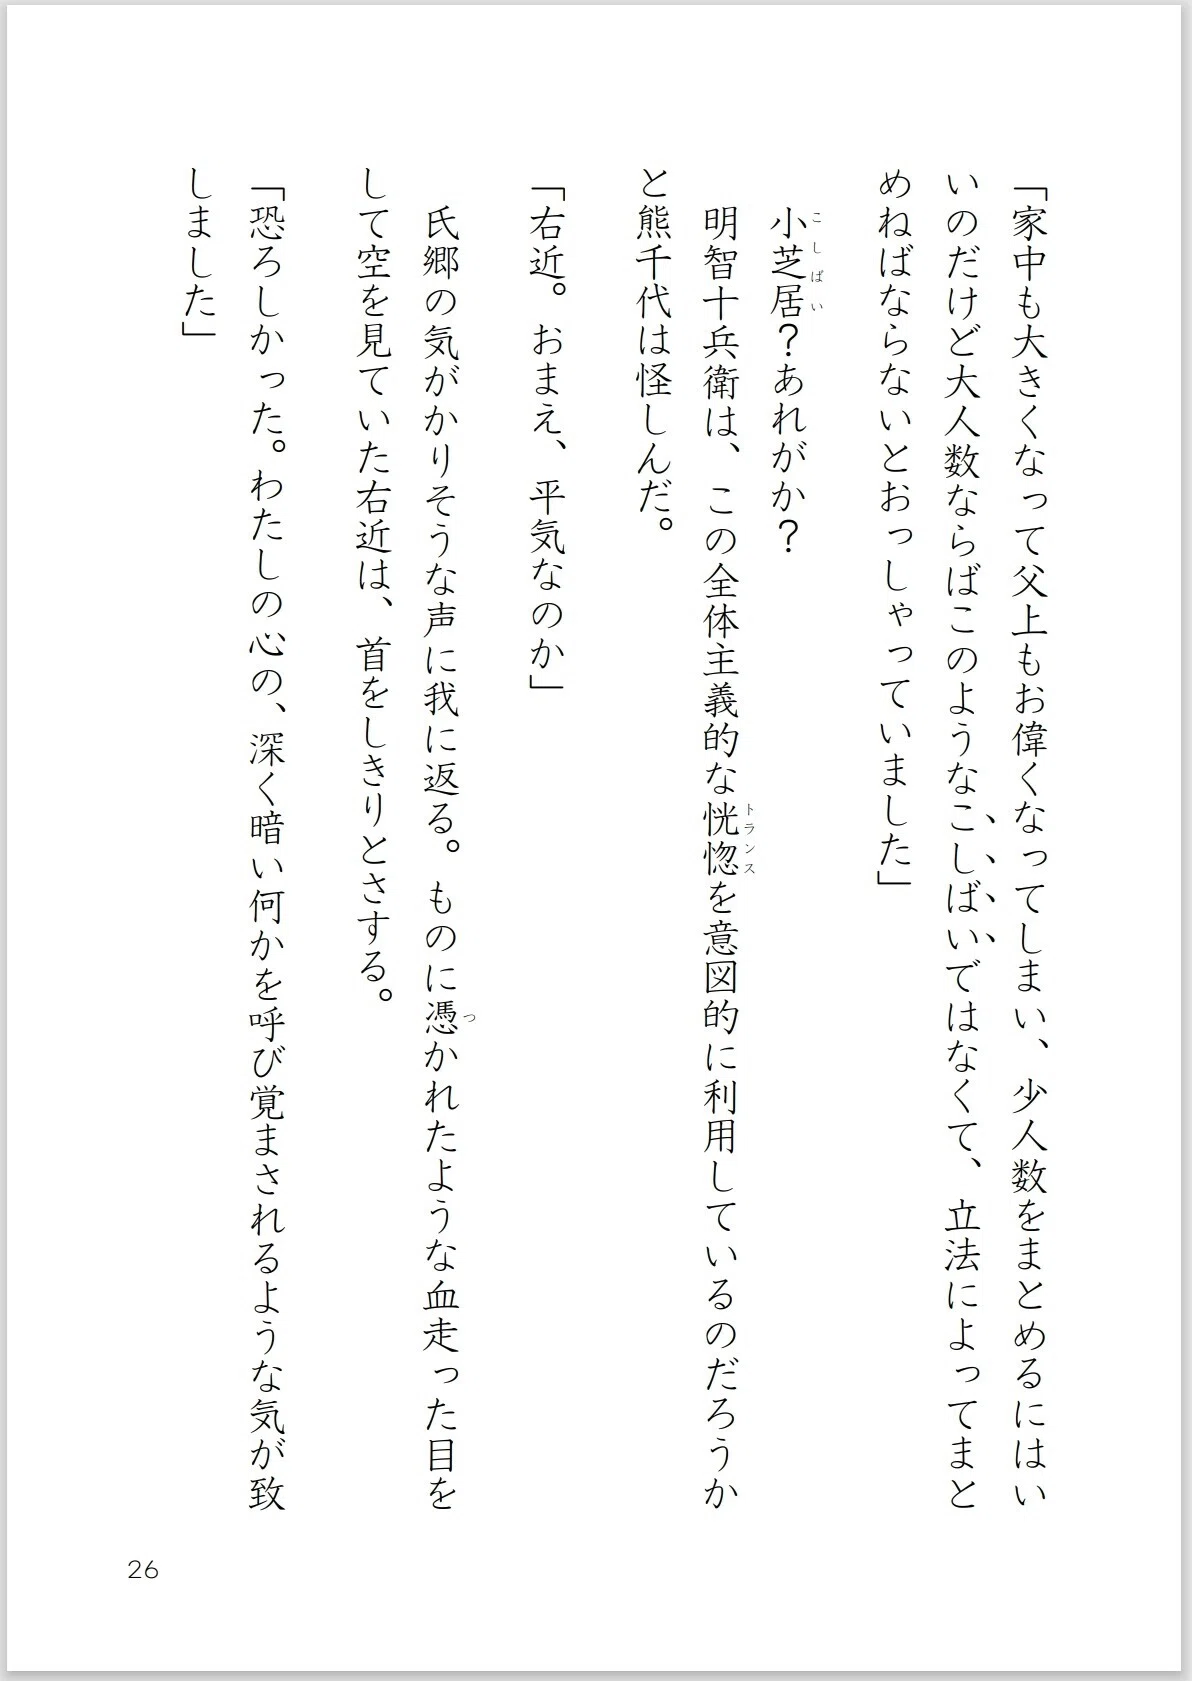 「家中も大きくなって父上もお偉くなってしまい、少人数をまとめるにはい
いのだけど大人数ならばこのようなこしばいではなくて、立法によってまと
めねばならないとおっしゃっていました」
小芝居？あれがか？
こしばい
明智十兵衛は、この全体主義的な恍惚を意図的に利用しているのだろうか
トランス
と熊千代は怪しんだ。
「右近。おまえ、平気なのか」
氏郷の気がかりそうな声に我に返る。ものに憑かれたような血走った目を
つ
して空を見ていた右近は、首をしきりとさする。
「恐ろしかった。わたしの心の、深く暗い何かを呼び覚まされるような気が致
しました」
26